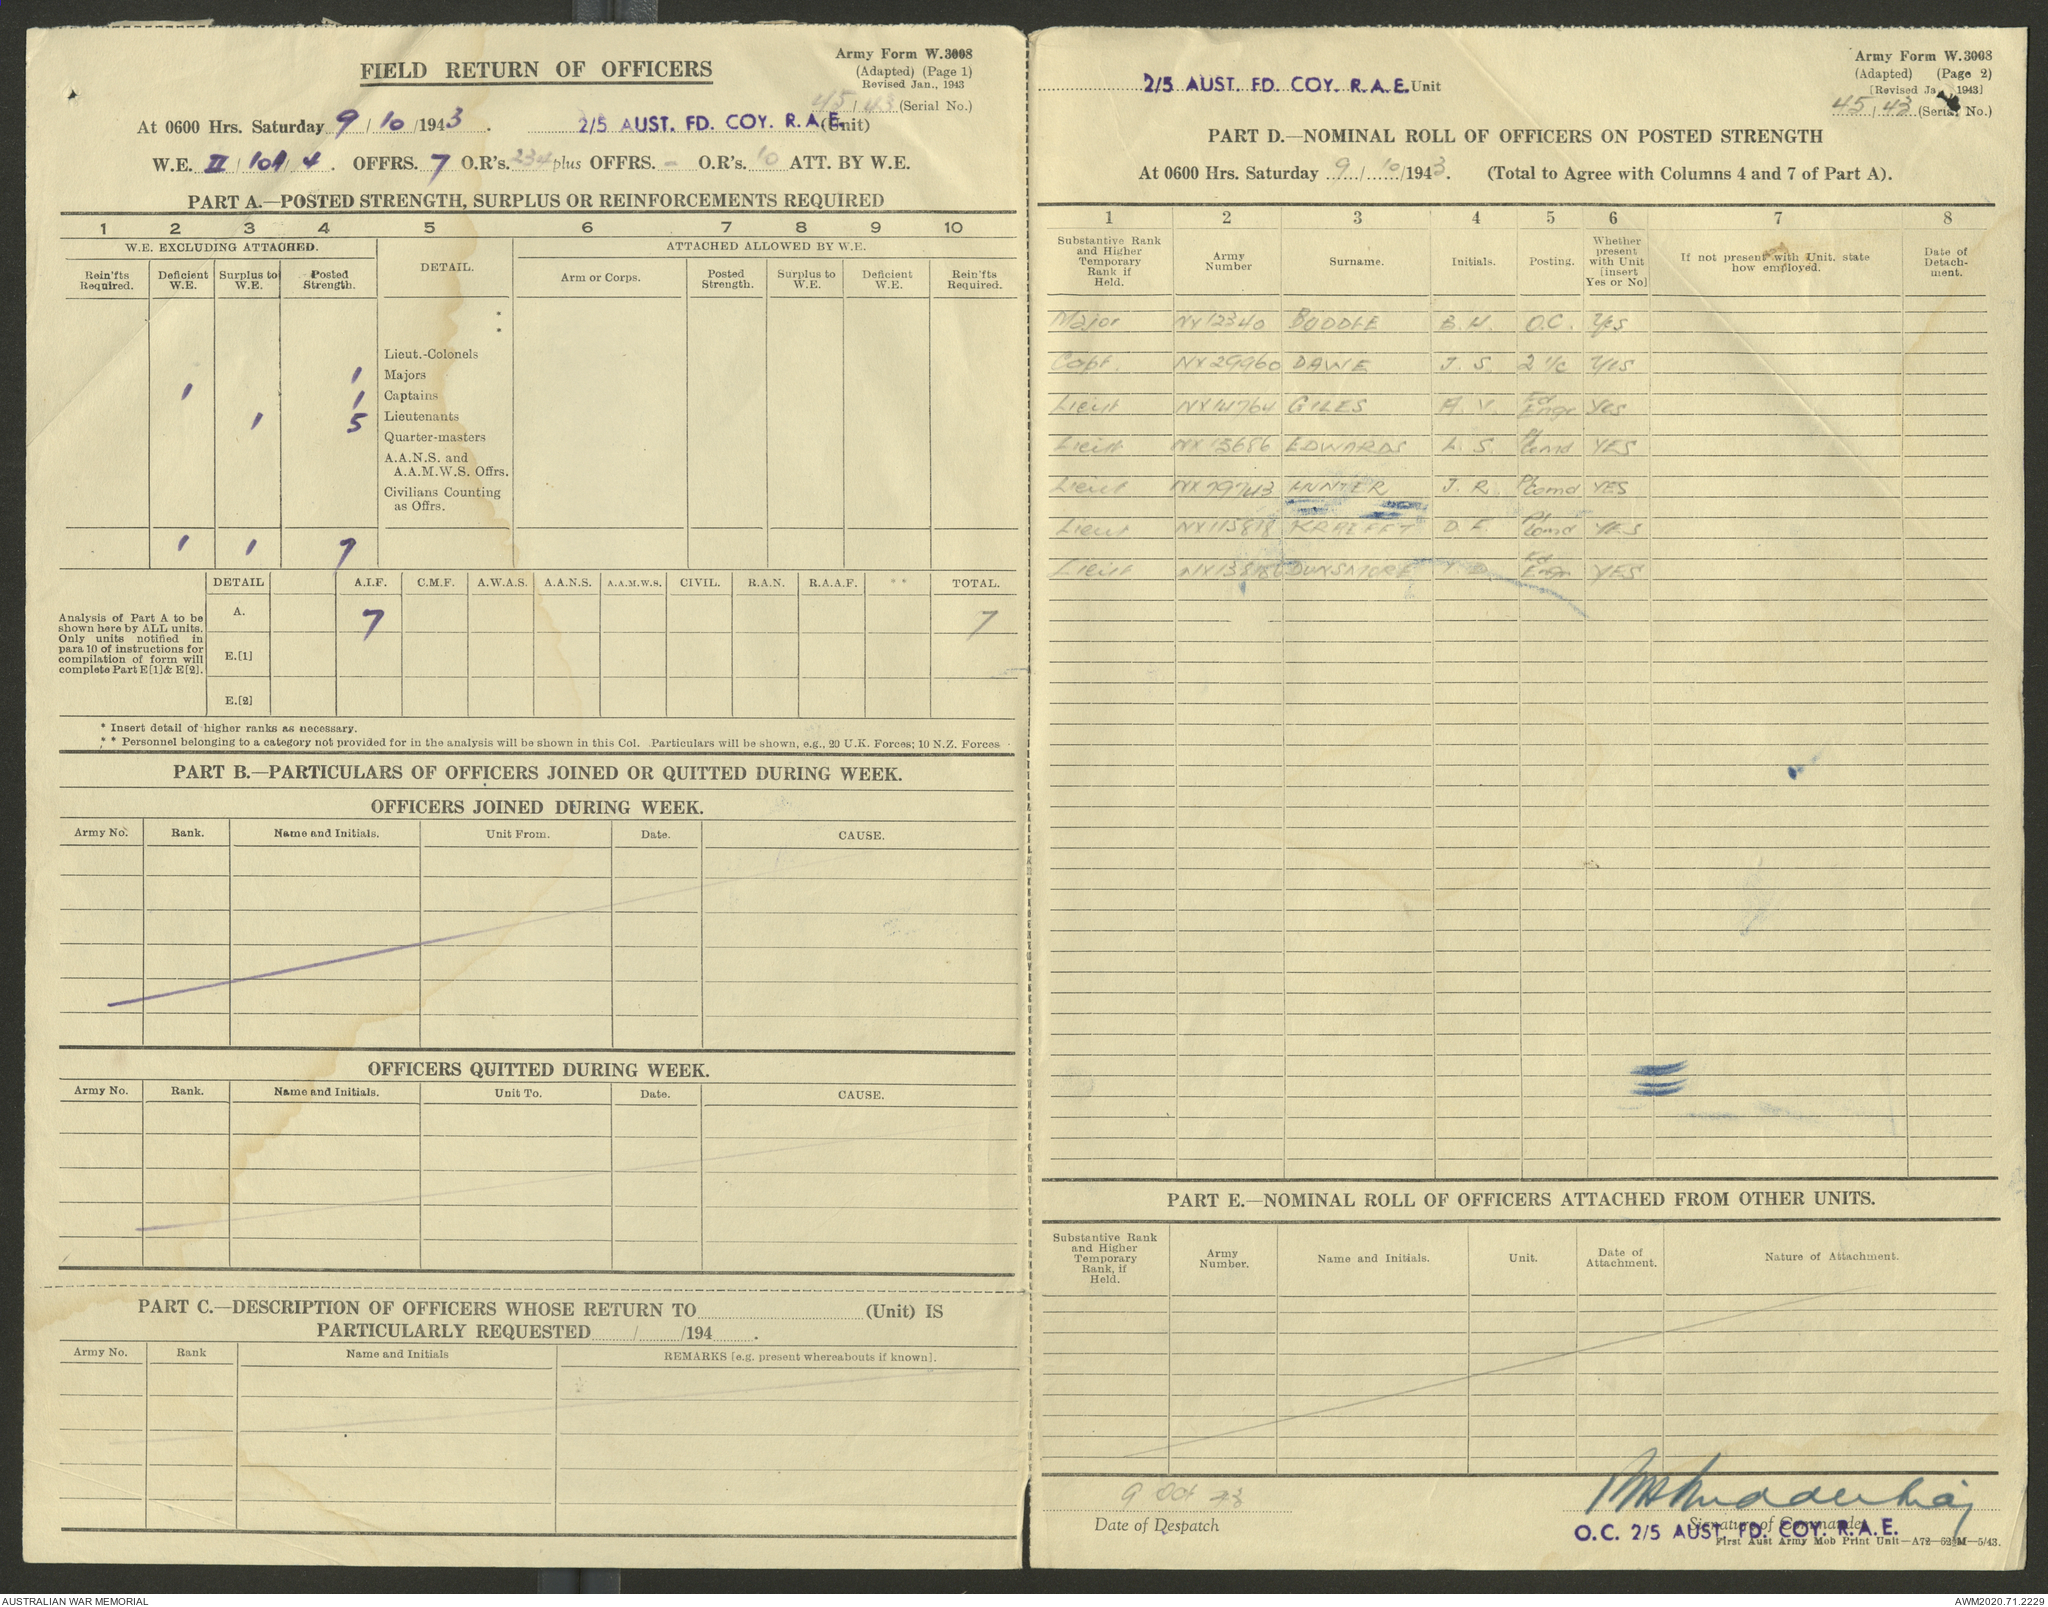 Army Form W.3008
(Adapted) (Page 1)
Revised Jan., 1943
FIELD RETURN OF OFFICERS
45/43 (Serial No.)
At 0600 Hrs. Saturday 9/10/1943. 2/5 AUST. FD. COY. R.A.E. (Unit)
W.E. II/101/4. OFFRS. 7 O.R's. 234 plus OFFRS. - O.R's. 10 ATT. BY W.E.
PART A.—POSTED STRENGTH, SURPLUS OR REINFORCEMENTS REQUIRED
1 2 3 4 5 6 7 8 9 10
W.E. EXCLUDING ATTACHED. DETAIL. ATTACHED ALLOWED BY W.E.
Rein'fts Required. Deficient W.E. Surplus to W.E. Posted Strength. Arm or Corps. Posted Strength. Surplus to W.E. Deficient W.E. Rein'fts Required.
Lieut.-Colonels
1 Majors
1 1 Captains
1 5 Lieutenants
Quarter-masters
A.A.N.S. and
A.A.M.W.S. Offrs.
Civilians Counting
as Offrs.
1 1 7
DETAIL A.I.F. C.M.F. A.W.A.S. A.A.N.S. A.A.M.W.S. CIVIL. R.A.N. R.A.A.F. ** TOTAL.
Analysis of Part A to be
shown here by ALL units.
Only units notified in
para 10 of instructions for
compilation of form will
complete Part E[1] & E[2].
A. 7 7
E.[1]
E.[2]
* Insert detail of higher ranks as necessary.
* * Personnel belonging to a category not provided for in the analysis will be shown in this Col. Particulars will be shown, e.g., 20 U.K. Forces; 10 N.Z. Forces
PART B.—PARTICULARS OF OFFICERS JOINED OR QUITTED DURING WEEK.
OFFICERS JOINED DURING WEEK.
Army No. Rank. Name and Initials. Unit From. Date. CAUSE.
OFFICERS QUITTED DURING WEEK.
Army No. Rank. Name and Initials. Unit To. Date. CAUSE.
PART C.—DESCRIPTION OF OFFICERS WHOSE RETURN TO (Unit) IS
PARTICULARLY REQUESTED / /194 .
Army No. Rank Name and Initials REMARKS [e.g. present whereabouts if known].
Army Form W.3008
(Adapted) (Page 2)
[Revised Ja 1943]
2/5 AUST. FD. COY. R.A.E. Unit
45/43 (Serial No.)
PART D.—NOMINAL ROLL OF OFFICERS ON POSTED STRENGTH
At 0600 Hrs. Saturday 9/10/1943. (Total to Agree with Columns 4 and 7 of Part A).
1 2 3 4 5 6 7 8
Substantive Rank and Higher Temporary Rank if Held. Army Number Surname. Initials. Posting. Whether present with Unit [insert Yes or No] If not present with Unit, state how employed. Date of Detach-ment.
Major NX12340 BUDDLE B.H. O.C. Yes
Capt. NX29960 DAWE J. S. 2 i/c YES
Lieut NX14764 GILES A. V. Fd Engr Yes
Lieut NX15686 EDWARDS L. S. Pl Comd YES
Lieut NX79743 HUNTER J. R. Pl Comd YES
Lieut NX115818 KREFFT D. E. Pl Comd YES
Lieut DUNSMORE Fd Engr YES
PART E.—NOMINAL ROLL OF OFFICERS ATTACHED FROM OTHER UNITS.
Substantive Rank and Higher Temporary Rank, if Held. Army Number. Name and Initials. Unit. Date of Attachment. Nature of Attachment.
9 Oct 43
Date of Despatch
Signature of Commander
O.C. 2/5 AUST. FD. COY. R.A.E.
First Aust Army Mob Print Unit—A72—62½M—5/43.
AUSTRALIAN WAR MEMORIAL
AWM2020.71.2229